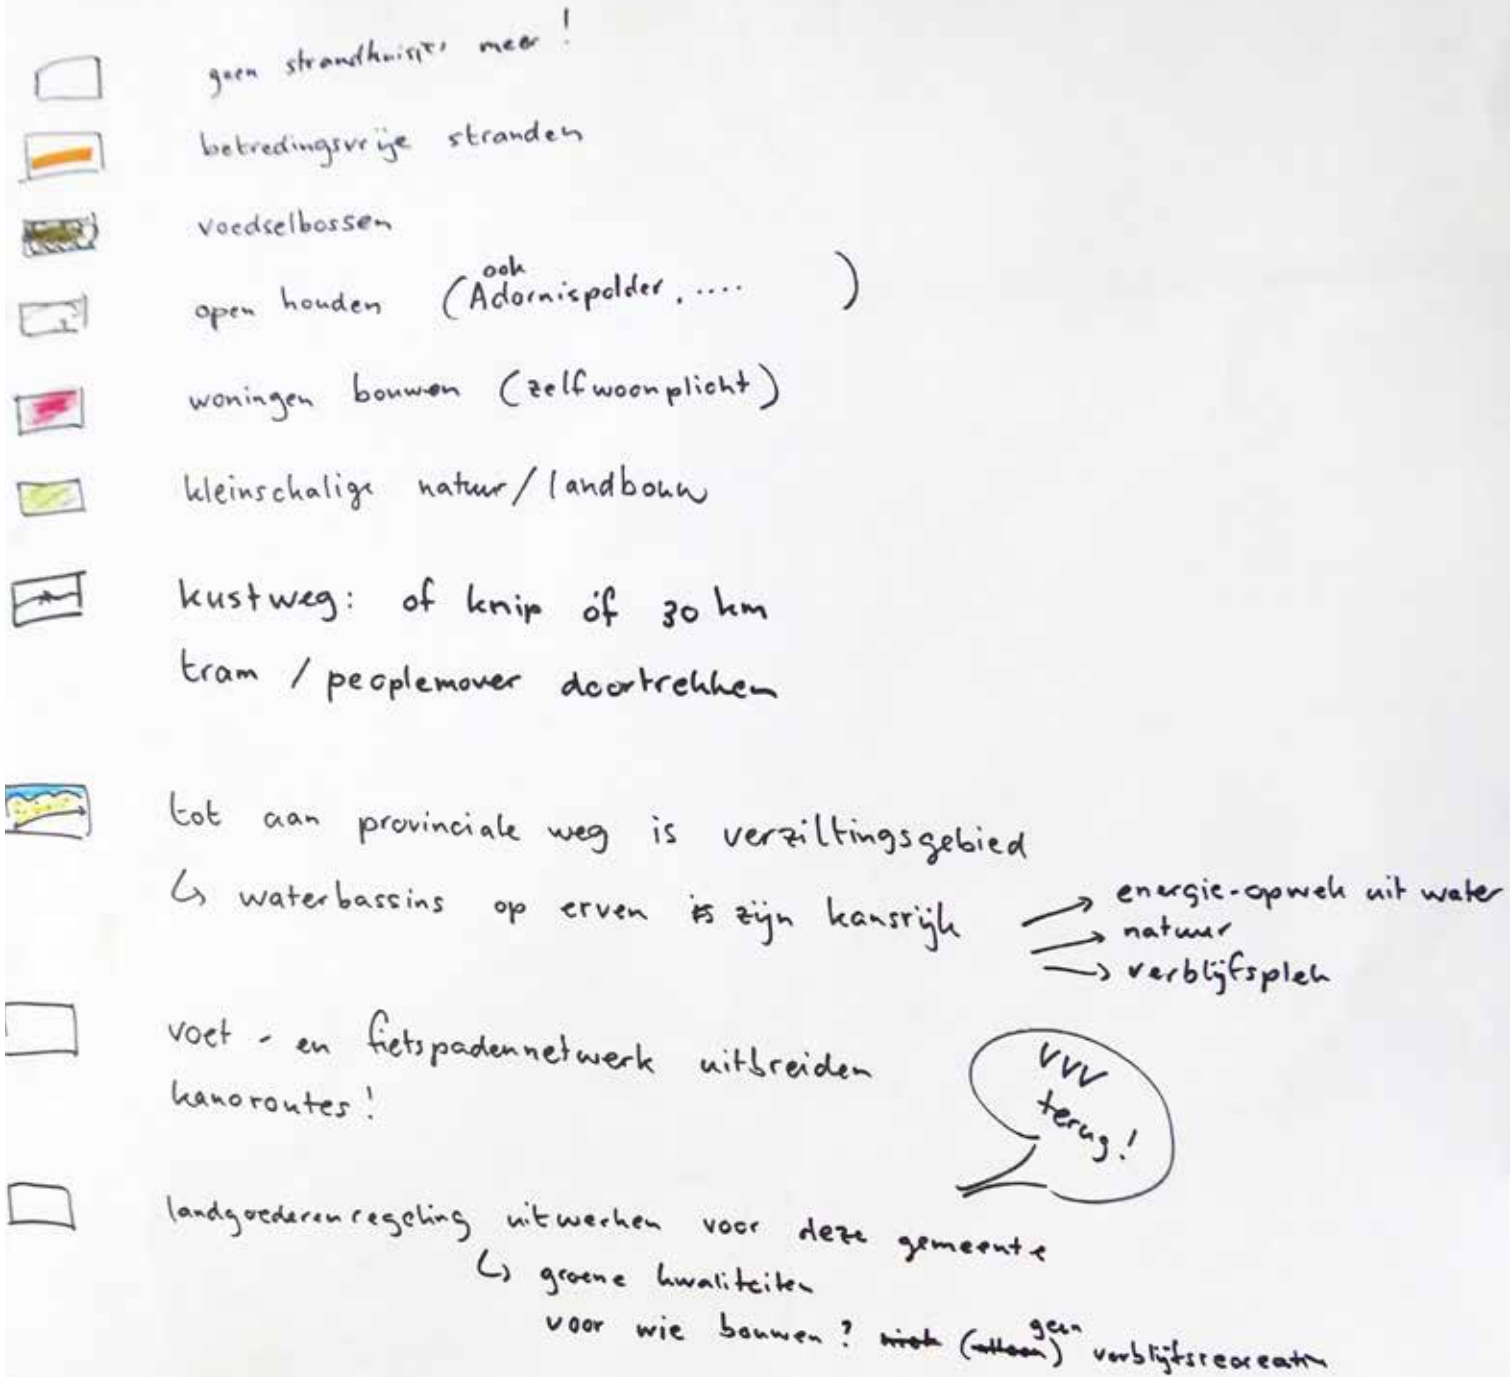 geen strandhuisjes meer!
betredingsvrije stranden
voedselbossen
open houden (ook Adornispolder, .... )
woningen bouwen (zelfwoonplicht)
kleinschalige natuur/landbouw
kustweg: of knip óf 30 km
tram / peoplemover doortrekken
tot aan provinciale weg is verziltingsgebied
↳ waterbassins op erven is zijn kansrijk → energie-opwek uit water
→ natuur
→ verblijfsplek
voet - en fietspadennetwerk uitbreiden
kanoroutes!
VVV
terug!
landgoederenregeling uitwerken voor deze gemeente
↳ groene kwaliteiten
voor wie bouwen? niet (alleen) geen verblijfsrecreatie